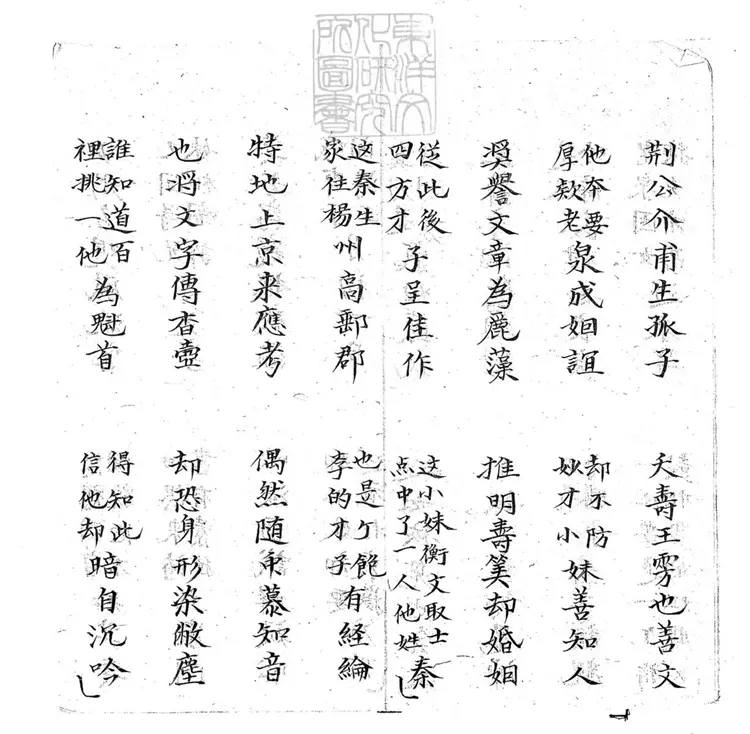 東洋文化研究所圖書
荆公介甫生孤子
夭壽王雱也善文
他夲要厚欵老泉成姻誼
却不防妙才小妹善知人
奨譽文章為麗藻
推明壽筭却婚姻
從此後四方才子呈佳作
这小妹衡文取士点中了一人他姓秦
这秦生家住楊州高郵郡
也是个飽李的才子有経綸
特地上京来應考
偶然随衆慕知音
也将文字傳杳壼
却恐身形染敝塵
誰知道百裡挑一他為魁首
得知此信他却暗自沉吟